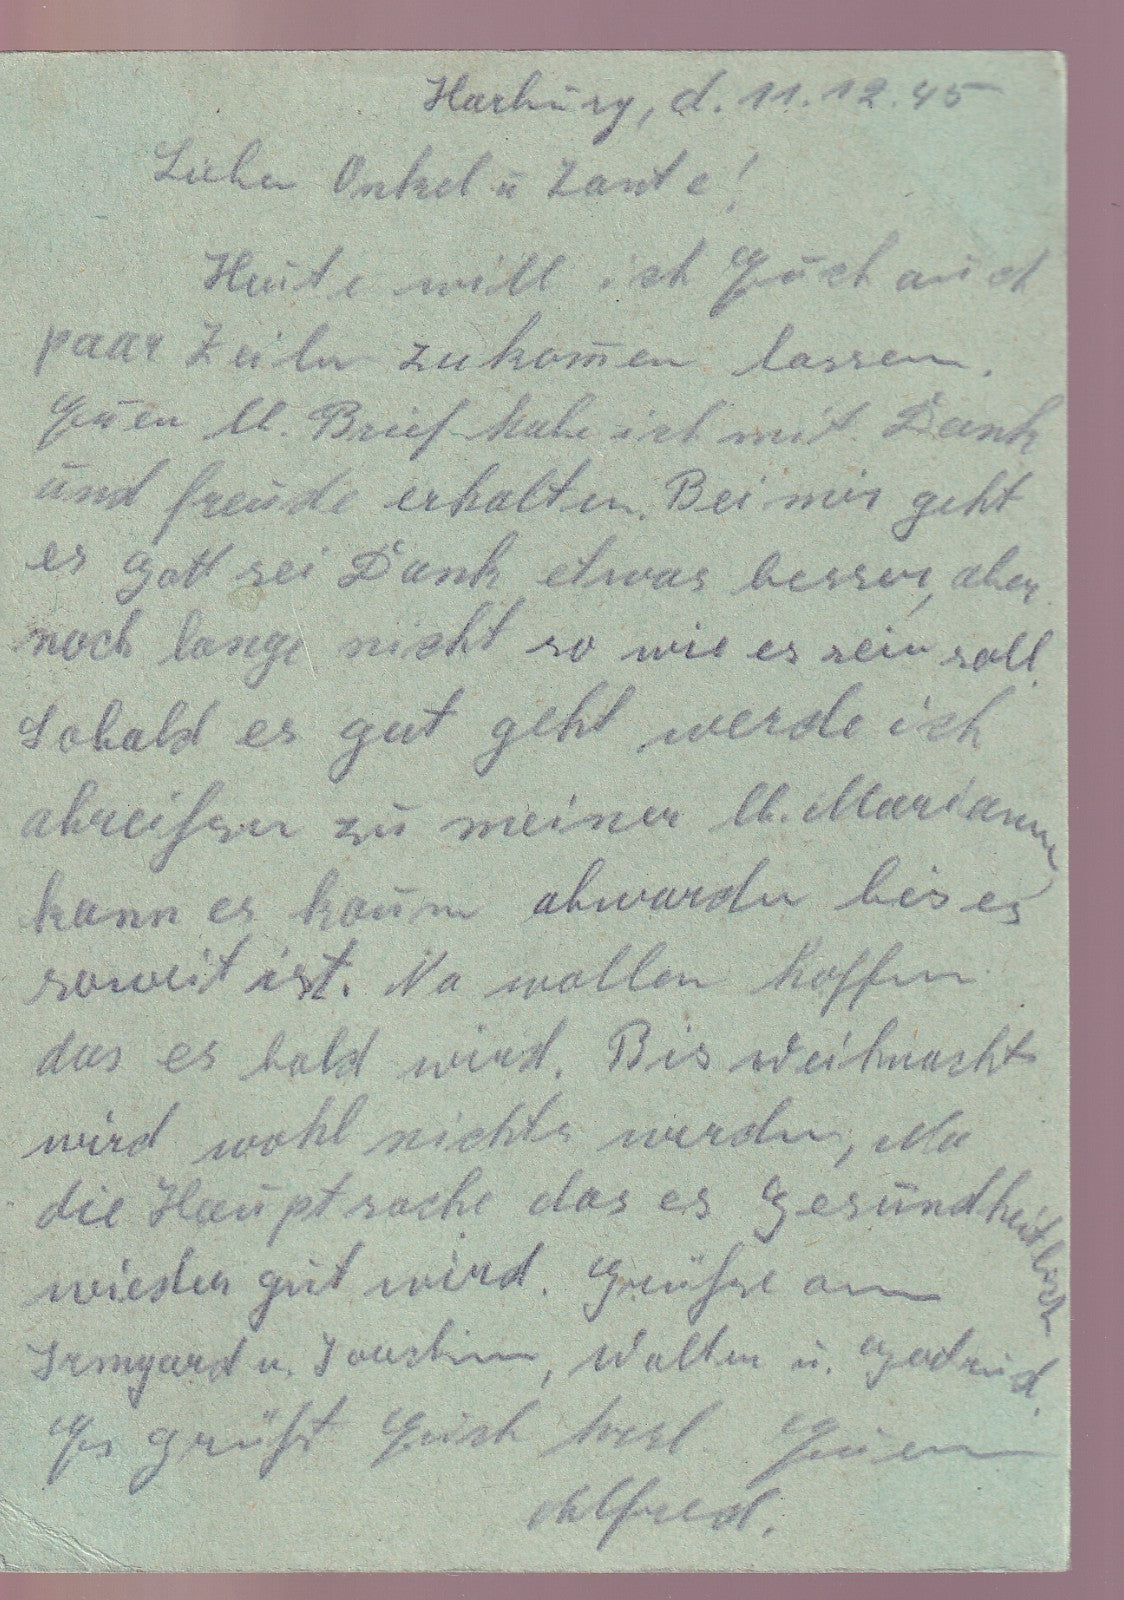 Harburg, d. 11.12.45
Lieber Onkel u Tante!
Heute will ich Euch auch
paar Zeiln zukom̅en lassen.
Euen lb. Brief habe ich mit Dank
und freude erhalten. Bei mir geht
es Gott sei Dank etwas besser, aber
noch lange nicht so wie es sein soll.
Sobald es gut geht werde ich
abreißen zu meiner lb. Marianne
kann es kaum abwarden bis es
soweit ist. Na wollen hoffen
das es bald wird. Bis Weihnacht
wird wohl nichts werden, Na
die Hauptsache das es Gesundheitlich
wieder gut wird. Grüße an
Irmgard u. Joachim, Walter u. Gertrud.
Es grüßt Euch herzl Euer
Alfred.